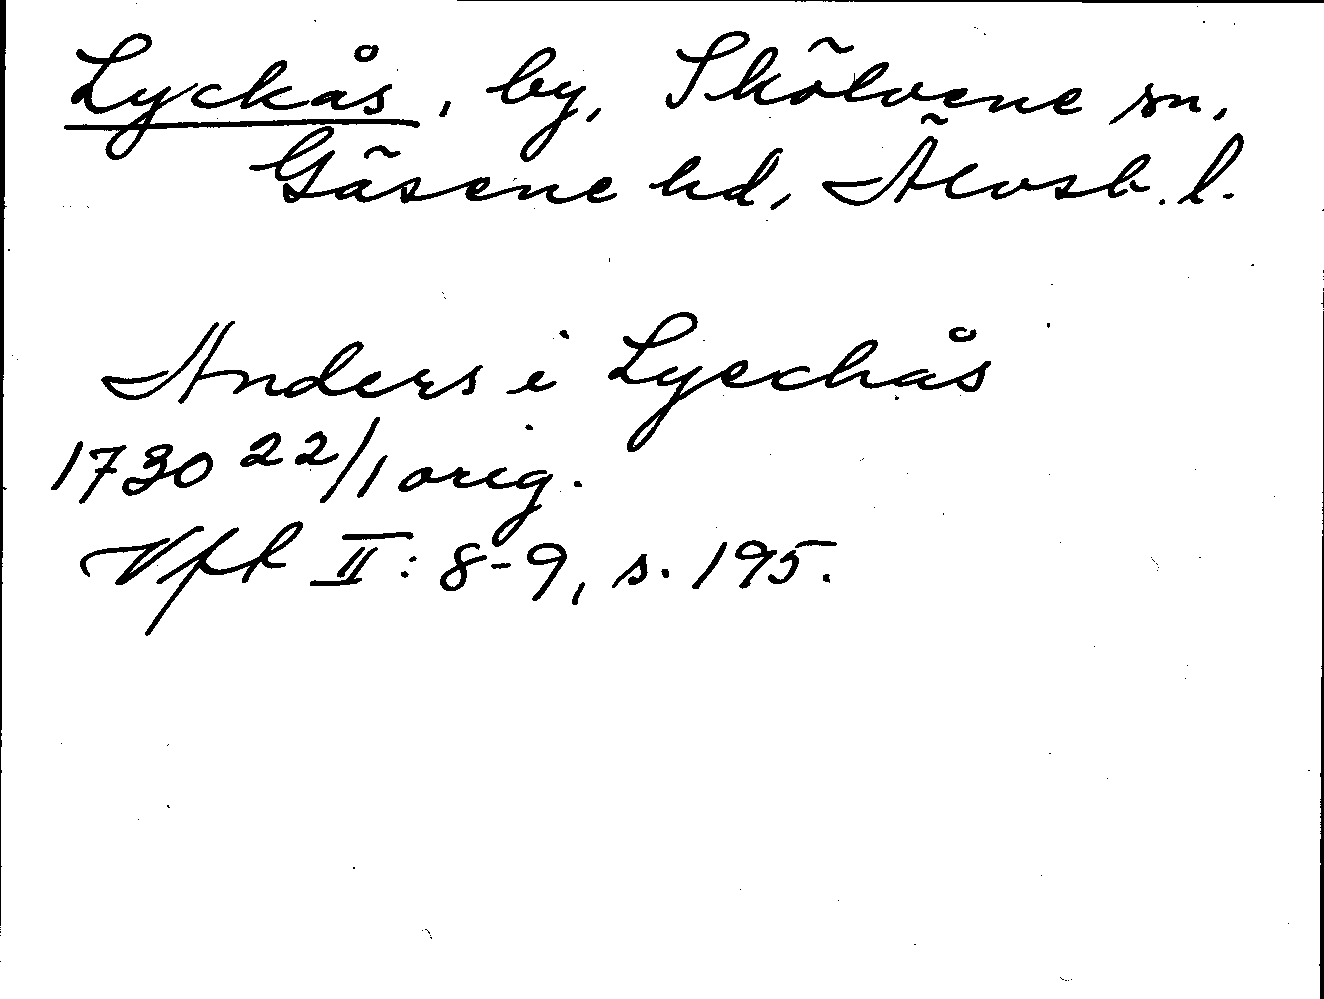 Lyckås, by, Skölvene sn,
Gäsene hd, Älvsb. l.
Anders i Lyeckås
1730 22/1 orig.
Vfr II: 8-9, s. 195.